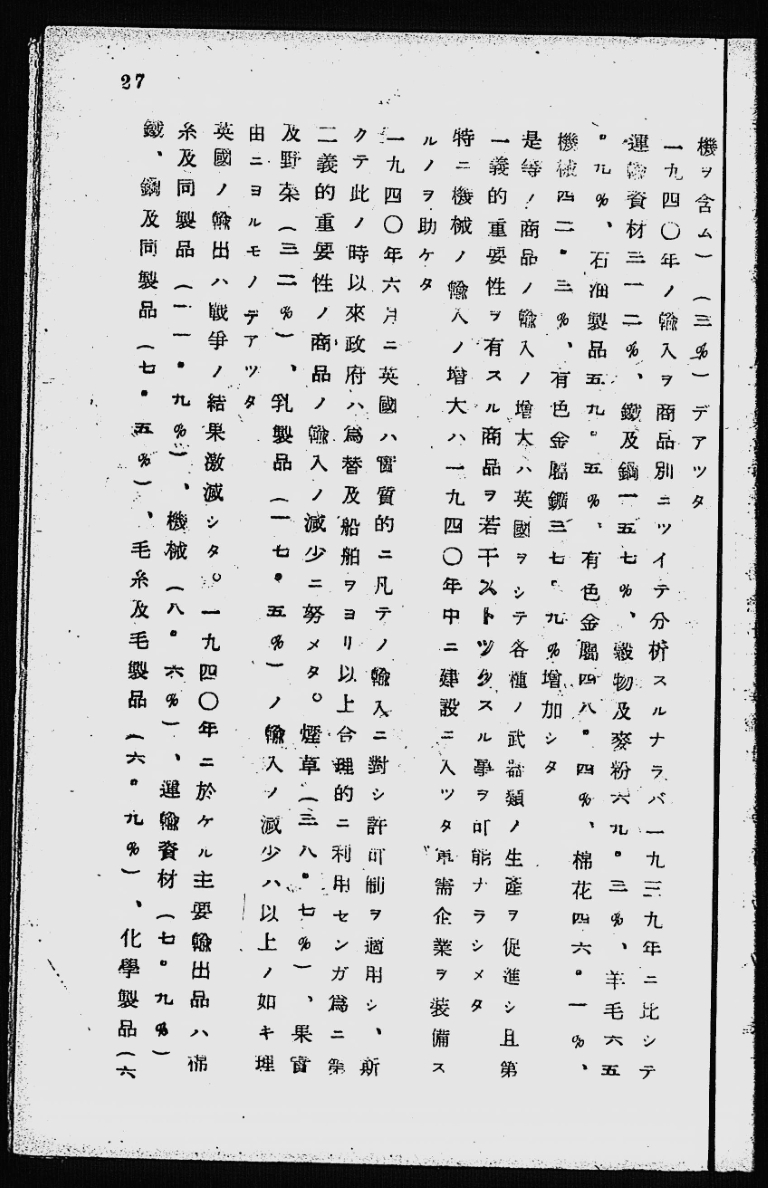 27
機ヲ含ム）（三％）デアツタ
一九四〇年ノ輸入ヲ商品別ニツイテ分析スルナラバ一九三九年ニ比シテ
運輸資材三一二％、鐵及鋼一五七％、穀物及麥粉六九・三％、羊毛六五
・九％、石油製品五九・五％、有色金屬四八・四％、棉花四六・一％、
機械四二・三％、有色金屬鑛三七・九％増加シタ
是等ノ商品ノ輸入ノ増大ハ英國ヲシテ各種ノ武器類ノ生產ヲ促進シ且第
一義的重要性ヲ有スル商品ヲ若干ストツクスル事ヲ可能ナラシメタ
特ニ機械ノ輸入ノ増大ハ一九四〇年中ニ建設ニ入ツタ軍需企業ヲ装備ス
ルノヲ助ケタ
一九四〇年六月ニ英國ハ實質的ニ凡テノ輸入ニ對シ許可制ヲ適用シ、斯
クテ此ノ時以來政府ハ爲替及船舶ヲヨリ以上合理的ニ利用センガ爲ニ第
二義的重要性ノ商品ノ輸入ノ減少ニ努メタ。煙草（三八・七％）、果實
及野菜（三二％）、乳製品（一七・五％）ノ輸入ノ減少ハ以上ノ如キ理
由ニヨルモノデアツタ
英國ノ輸出ハ戰爭ノ結果激減シタ。一九四〇年ニ於ケル主要輸出品ハ棉
糸及同製品（一一・九％）、機械（八・六％）、運輸資材（七・九％）
鐵、鋼及同製品（七・五％）、毛糸及毛製品（六・九％）、化學製品（六